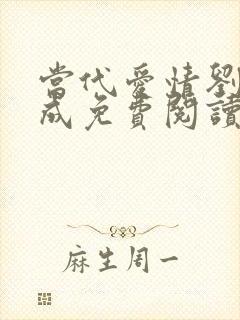 當代愛情劉
成免費閱讀
麻生周一